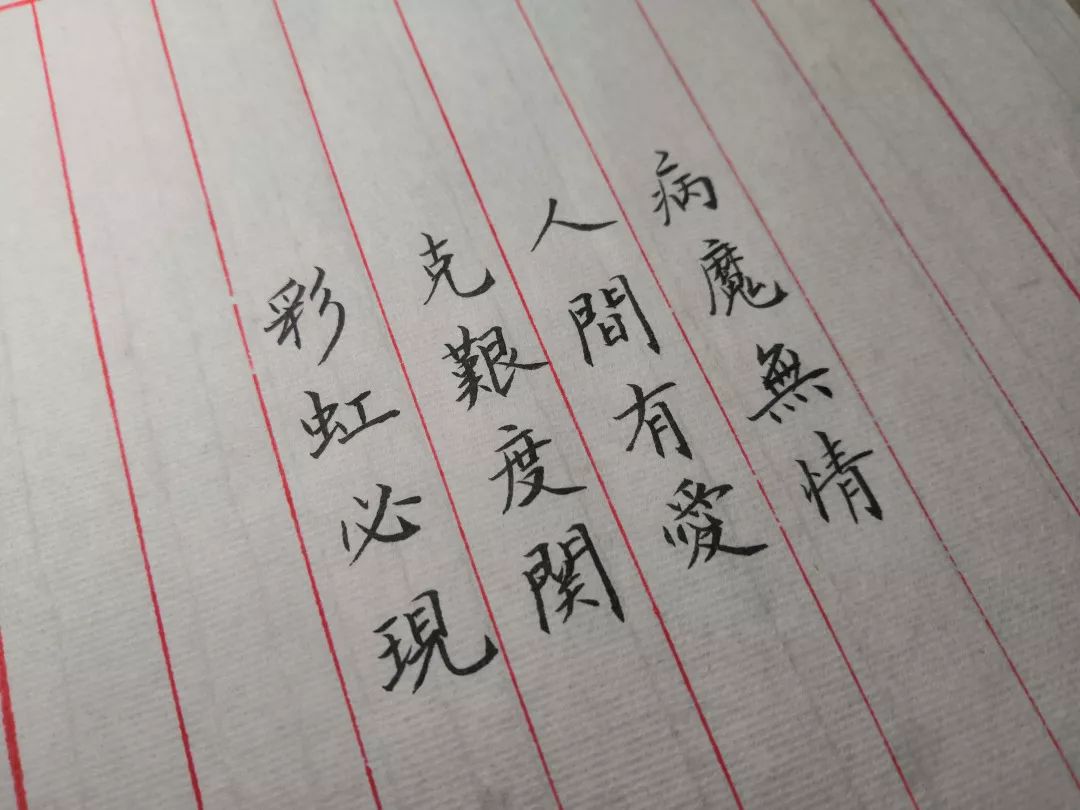 病魔無情
人間有愛
克艱度関
彩虹必現